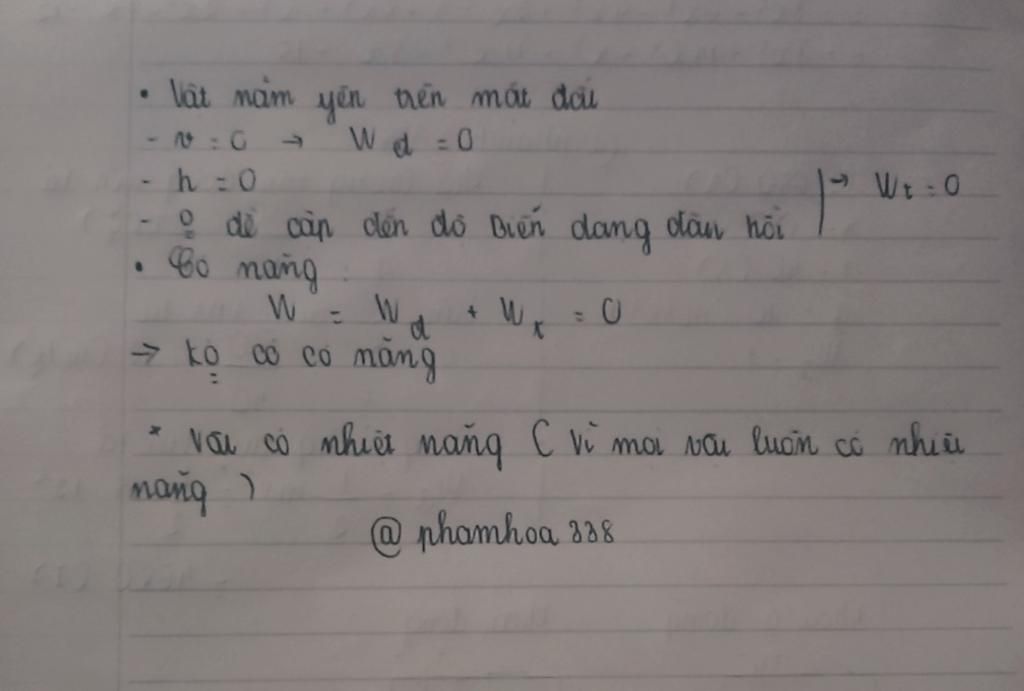 • Vật nằm yên trên mặt đất
- v = 0 → Wđ = 0
- h = 0
- o đề cập đến độ biến dạng đàn hồi | → Wt = 0
• Cơ năng :
W = Wđ + Wt = 0
→ ko có cơ năng
* Vật có nhiệt năng ( Vì mọi vật luôn có nhiệt
năng )
@ phamhoa 338